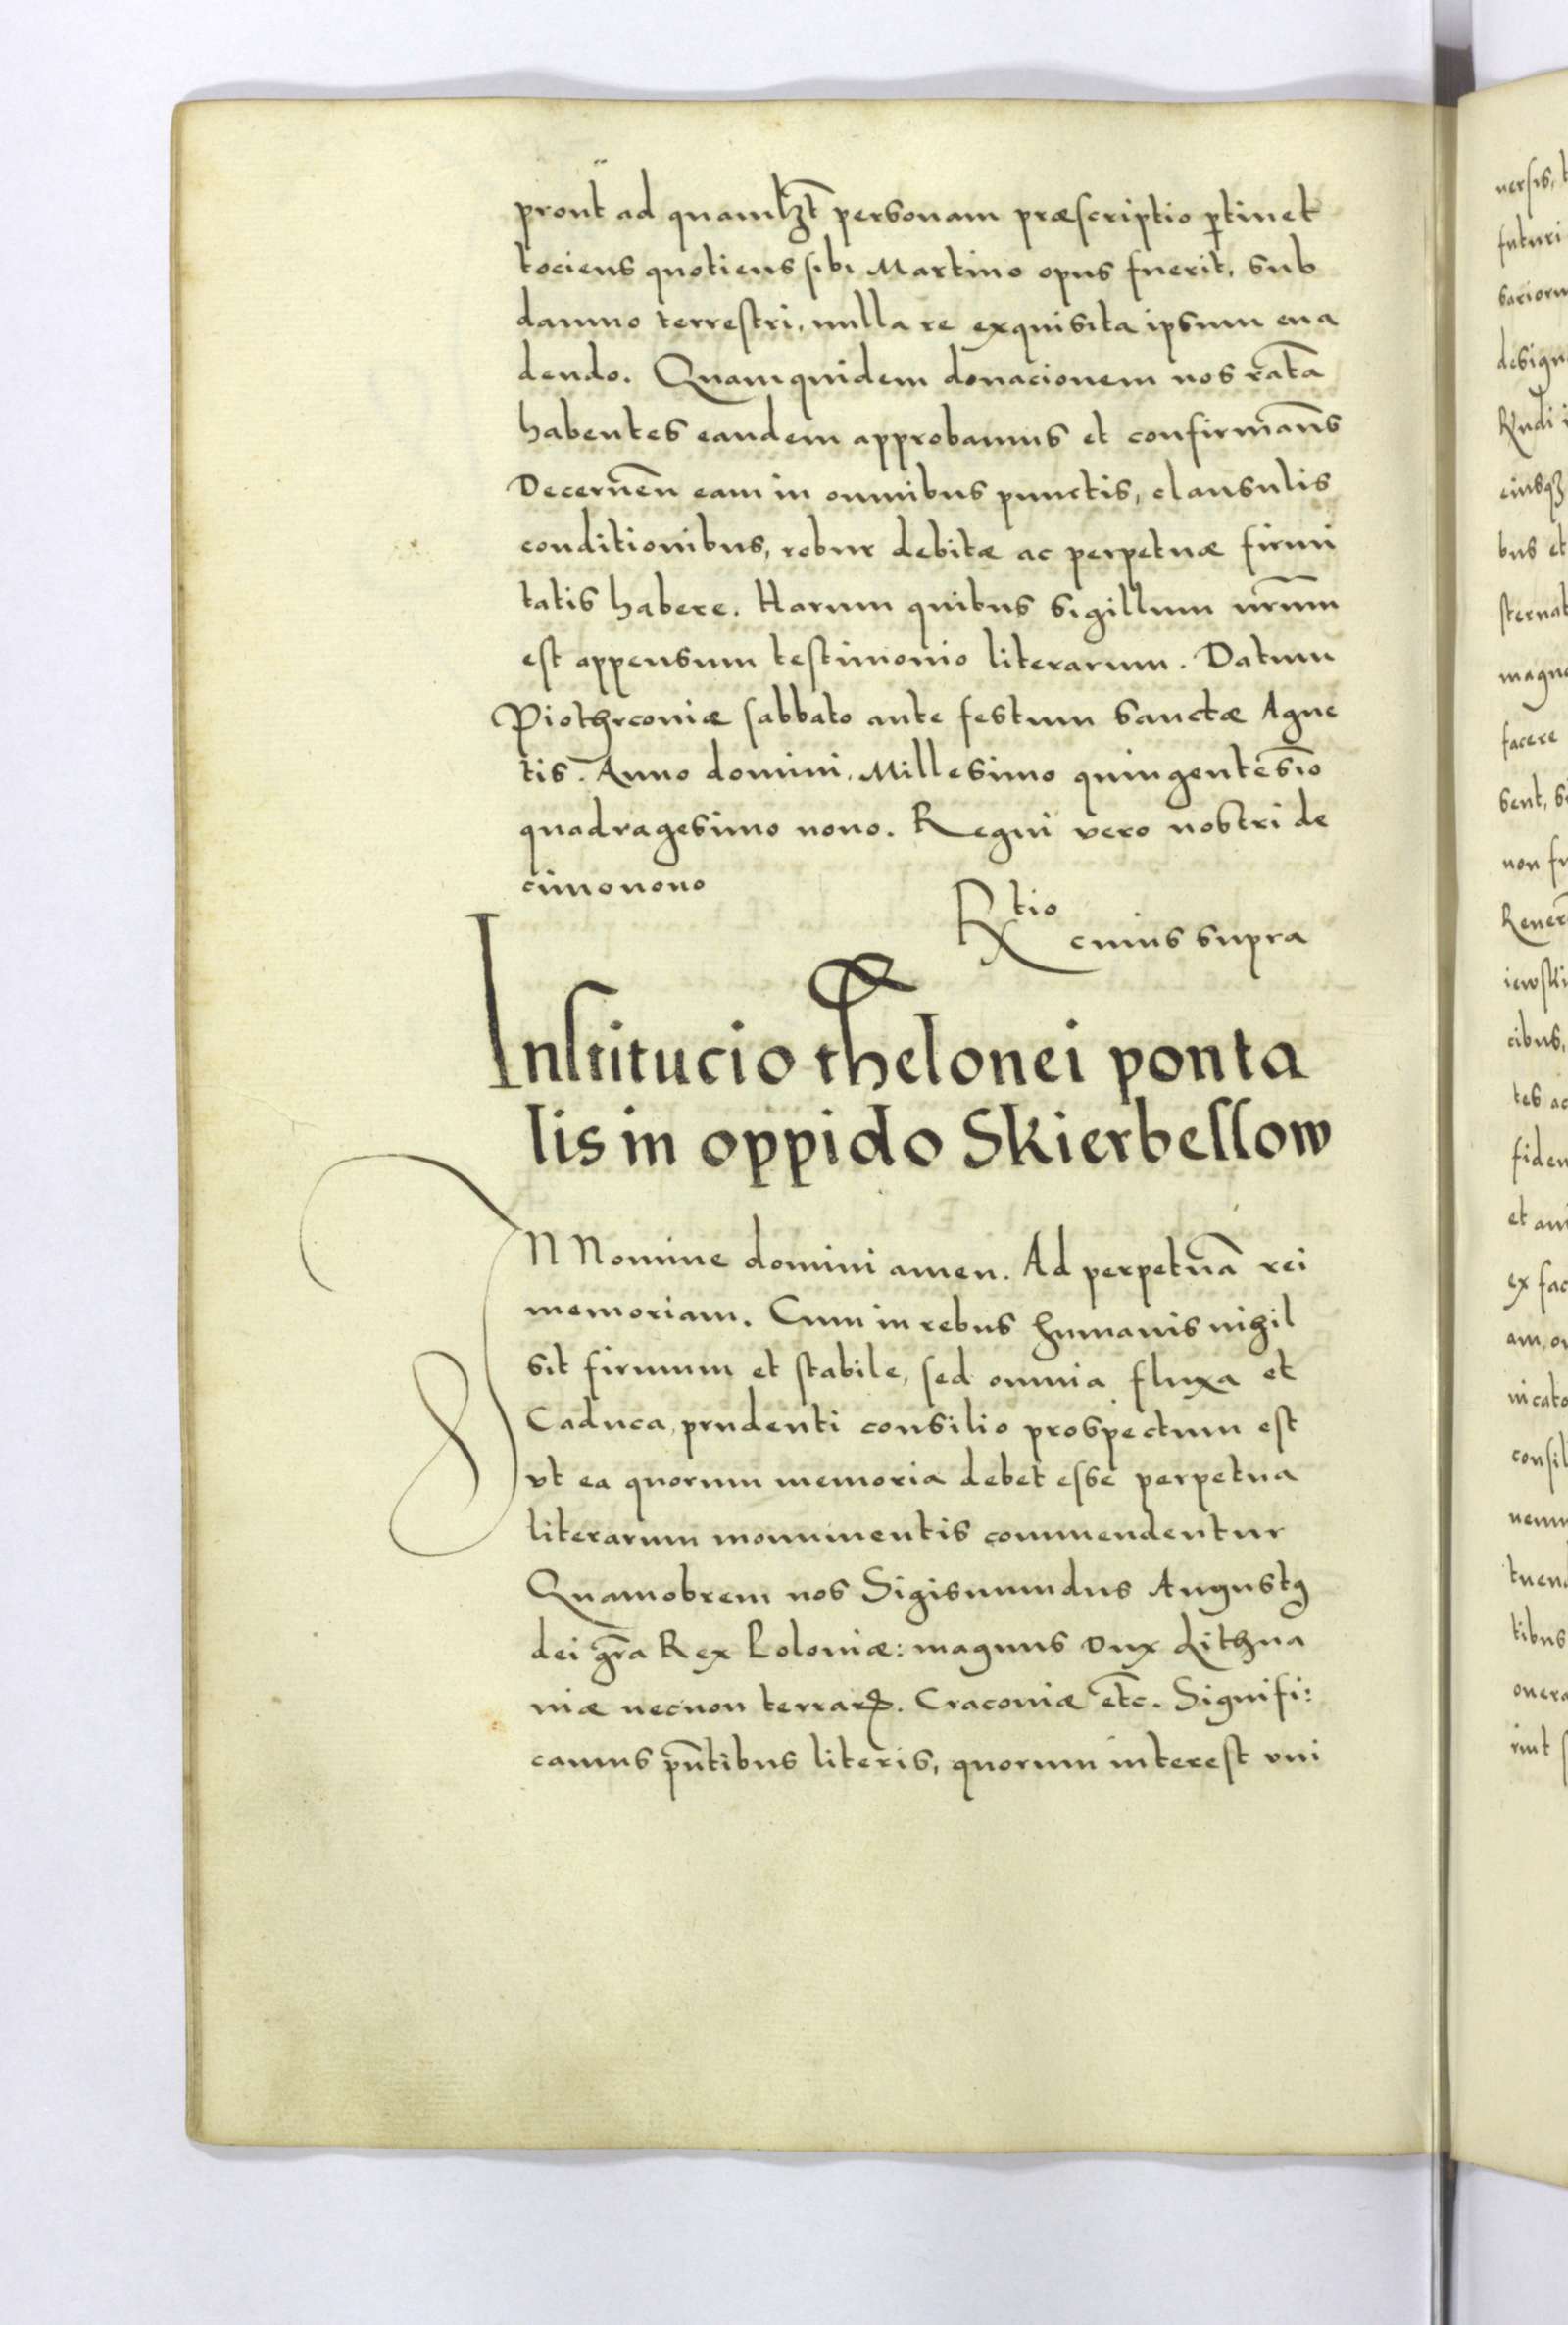 prout ad quamlꝫt personam præscriptio ꝑtinet
tociens quotiens sibi Martino opus fuerit, sub
damno terrestri, nulla re exquisita ipsum eua
dendo. Quamquidem donacionem nos ratā
habentes eandem approbamus et confirmam̄s
Decernēn eam in omnibus punctis, clausulis
conditionibus, robur debitæ ac perpetuæ firmi
tatis habere. Harum quibus sigillum nr̄um
est appensum testimonio literarum. Datum
Piothrconiæ sabbato ante festum Sanctæ Agne
tis. Anno domini, Millesimo quingentēsio
quadragesimo nono. Regni vero nostri de
cimonono
Rtio
cuius supra
Institucio thelonei ponta
lis in oppido Skierbessow
IN Nomine domini amen. Ad perpetuā rei
memoriam. Cum in rebus humanis nihil
sit firmum et stabile, sed omnia fluxa et
Caduca, prudenti consilio prospectum est
vt ea quorum memoria debet esse perpetua
literarum monumentis commendentur
Quamobrem nos Sigismundus Augustꝯ
dei gr̄a Rex Poloniæ: magnus Dux Lithua
niæ necnon terraꝝ. Cracoviæ etc̄. Signifi:
camus pn̄tibus literis, quorum interest vni
uersis,
futuri
sarioru
design
Rudi i
eiusqꝫ
bus et
sternat
magno
facere
sent, s
non fu
Reuere
iewski
cibus,
tes ac
fiden
et an
ex fac
am, o
nicato
consil
uenu
tuend
tibus
onera
rint